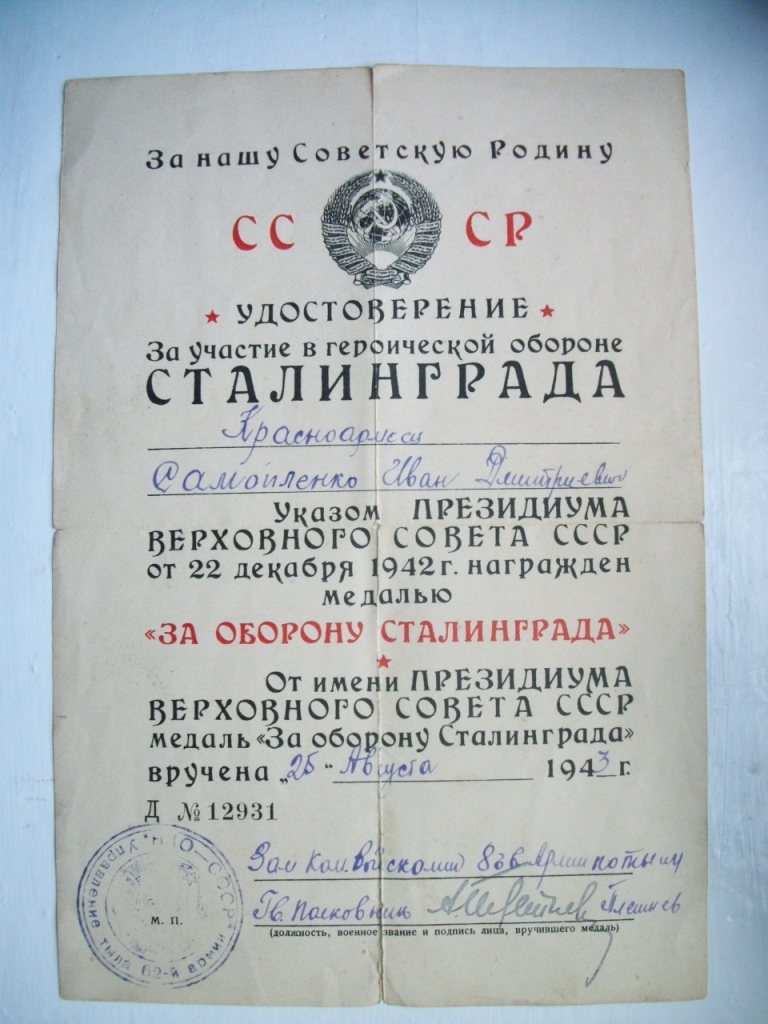 За нашу Советскую Родину
СССР
УДОСТОВЕРЕНИЕ
За участие в героической обороне
СТАЛИНГРАДА
Красноармеец
Самойленко Иван Дмитриевич
Указом ПРЕЗИДИУМА
ВЕРХОВНОГО СОВЕТА СССР
от 22 декабря 1942 г. награжден
медалью
«ЗА ОБОРОНУ СТАЛИНГРАДА»
От имени ПРЕЗИДИУМА
ВЕРХОВНОГО СОВЕТА СССР
медаль «За оборону Сталинграда»
вручена „25“ Августа 1943 г.
Д № 12931
Зам Ком. Войсками 8 Армии по тылу
Гв. Полковник
(должность, военное звание и подпись лица, вручившего медаль)
М. П.
Н.К.О.—СССР
Управление тыла 62-й армии